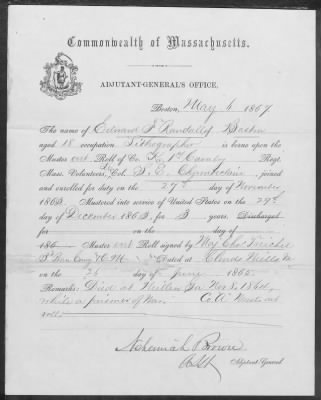 Commonwealth of Massachusetts.
ADJUTANT-GENERAL'S OFFICE,
Boston, May 6 1867
The name of Edward F. Randall, of Boston
aged 18 occupation Lithographer is borne upon the
Muster out Roll of Co. K. 1st Cavalry Regt.
Mass. Volunteers, Col. S. E. Chamberlain, joined
and enrolled for duty on the 27th day of November
1863. Mustered into service of United States on the 29th
day of December 1863, for 3 years. Discharged
for on the day of
186 Muster out Roll signed by Maj. Chs.
Dated at Clouds Mills Va
on the 26 day of June 1865.
Remarks: Died at Millen Ga Nov 8, 1864,
while a prisoner of War. Co. A. Must. out
roll.
Nehemiah Brown
Adjutant-General